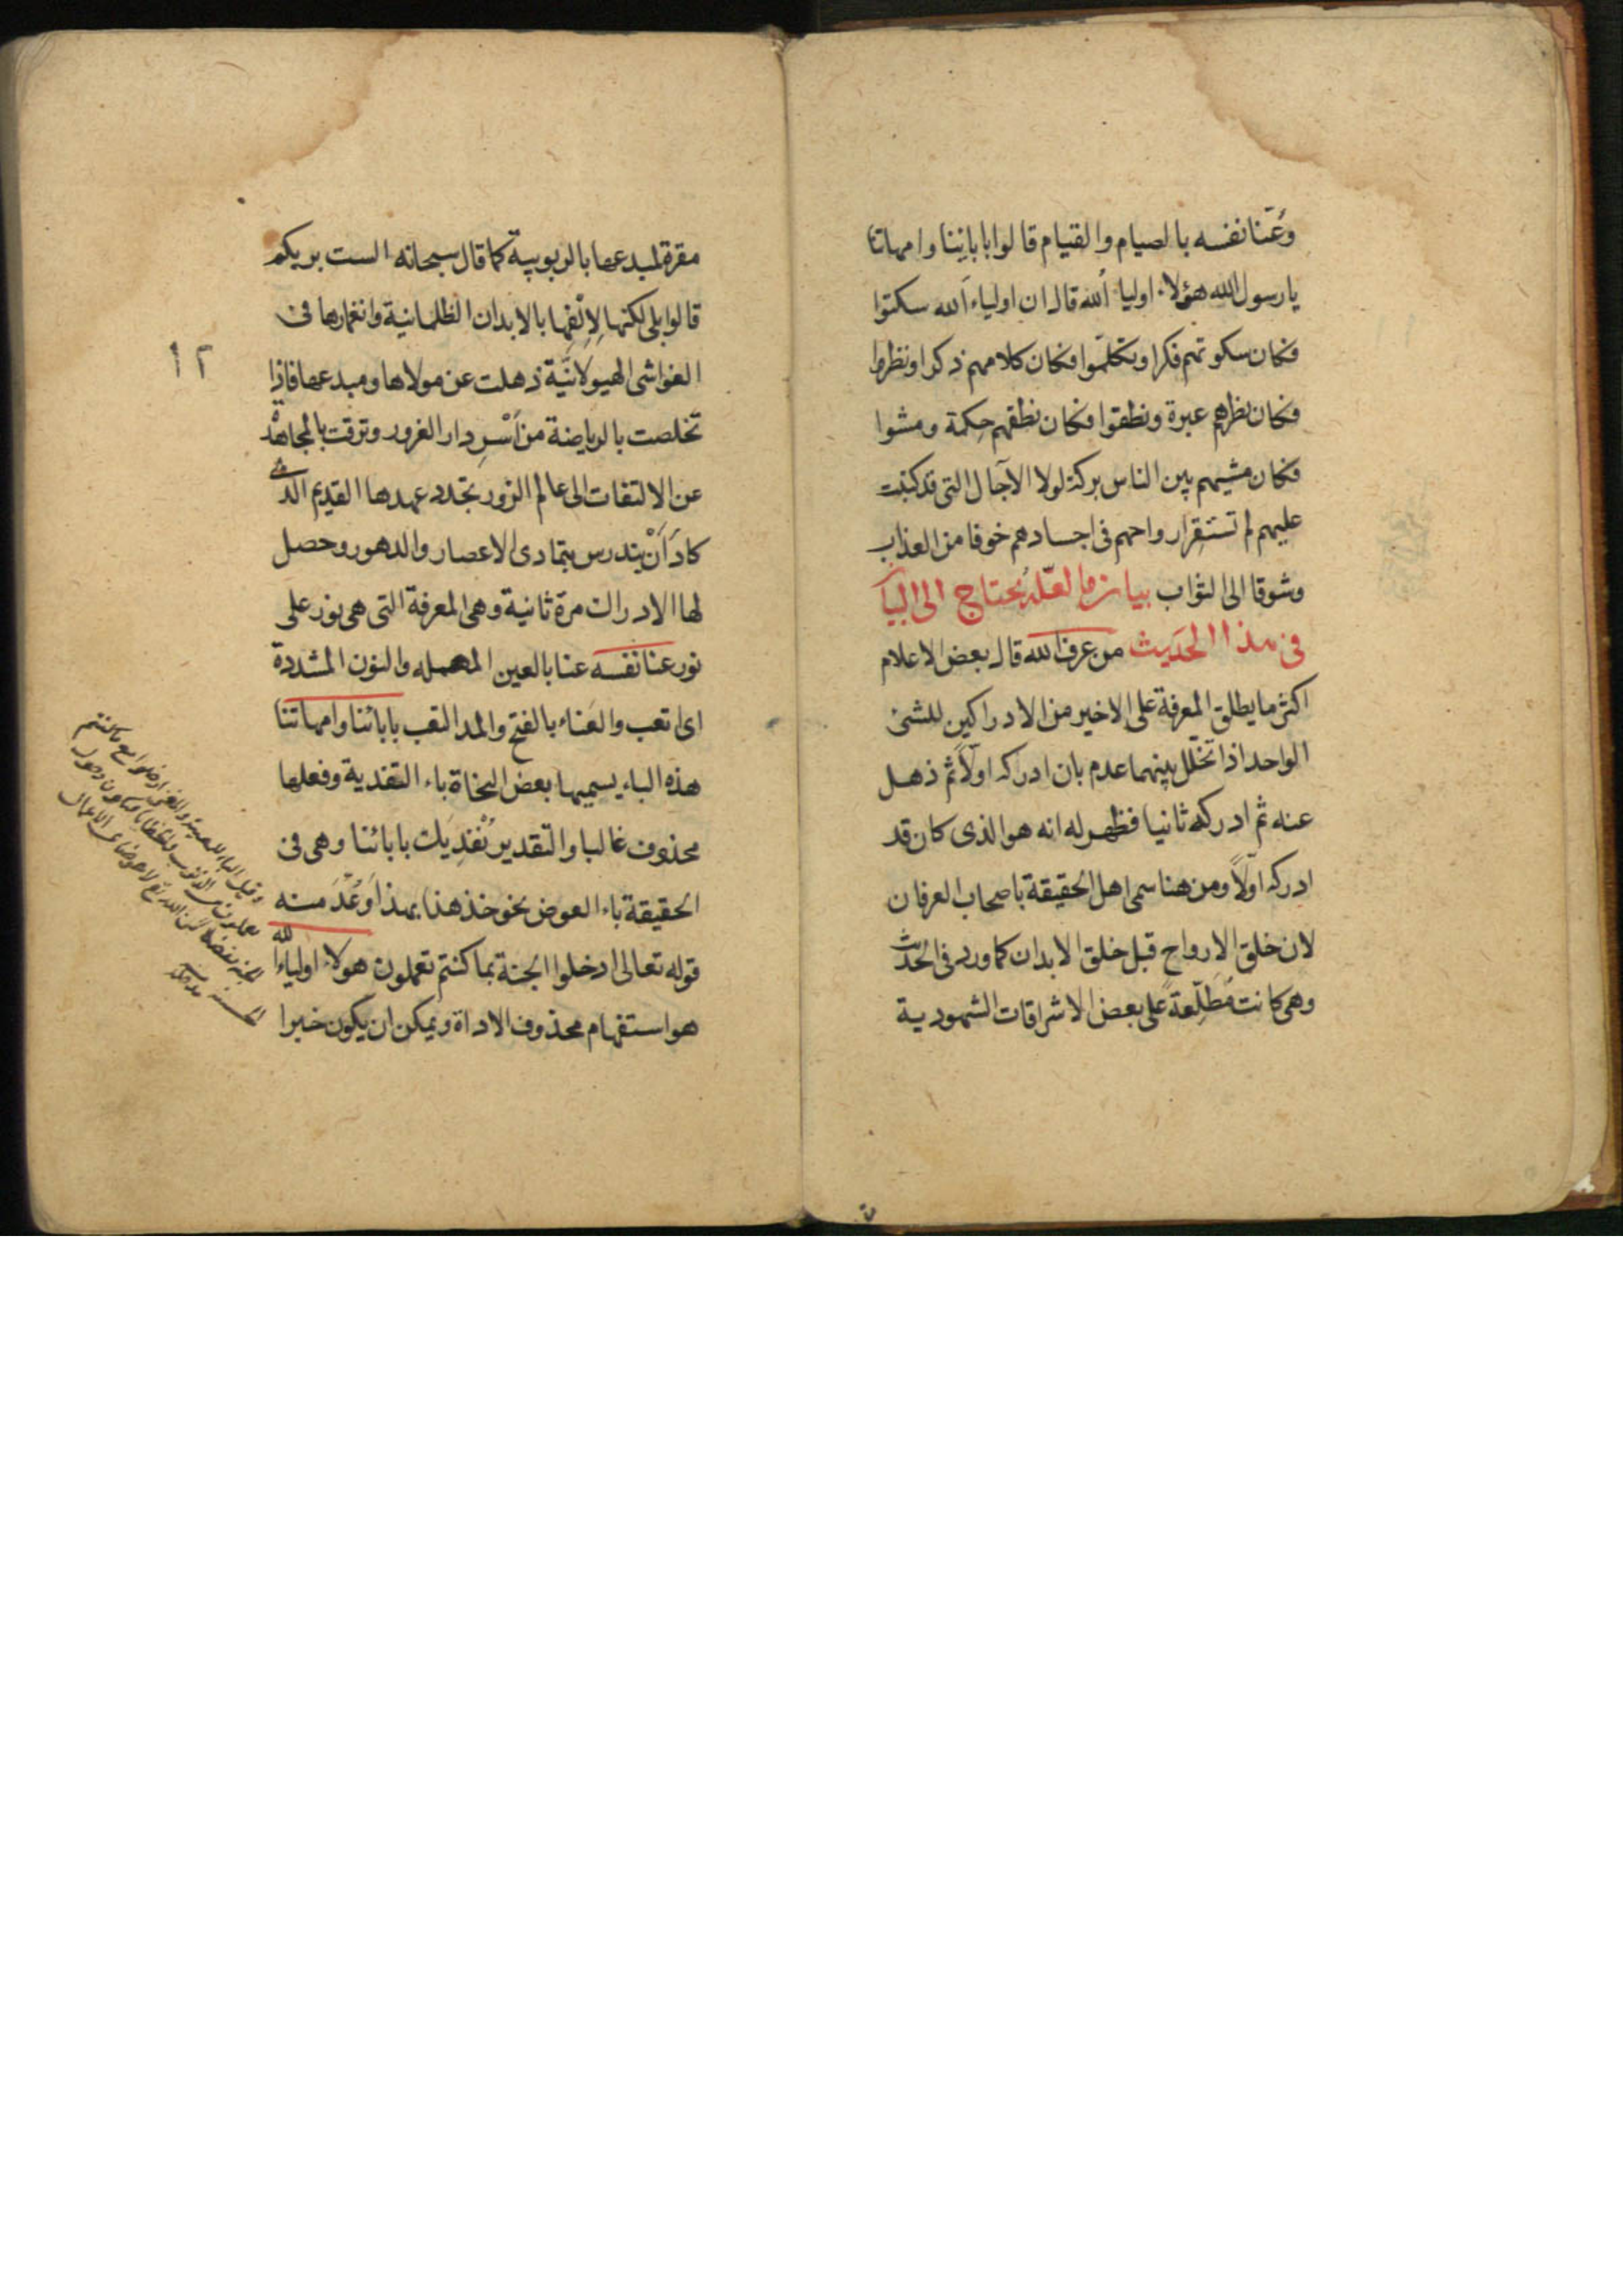 وعنا نفسه بالصيام والقيام قالوا بابائنا وامهاتنا
يا رسول الله هؤلاء اولياء الله قال ان اولياء الله سكتوا
فكان سكوتهم فكرا وتكلموا فكان كلامهم ذكرا ونظروا
فكان نظرهم عبرة ونطقوا فكان نطقهم حكمة ومشوا
فكان مشيهم بين الناس بركة لولا الآجال التى قد كتبت
عليهم لم تستقر ارواحهم فى اجسادهم خوفا من العذاب
وشوقا الى الثواب بيان ما لعله يحتاج الى البيان
فى هذا الحديث من عرف الله قال بعض الاعلام
اكثر ما يطلق المعرفة على الاخير من الادراكين للشئ
الواحد اذا تخلل بينهما عدم بان ادركه اولاً ثم ذهل
عنه ثم ادركه ثانيا فظهر له انه هو الذى كان قد
ادركه اولاً ومن هنا سمى اهل الحقيقة باصحاب العرفان
لان خلق الارواح قبل خلق الابدان كما ورد فى الحديث
وهى كانت مطلعة على بعض الاشراقات الشهودية
مقرة لمبدعها بالربوبية كما قال سبحانه الست بربكم
قالوا بلى لكنها لالفها بالابدان الظلمانية وانغمارها فى
الغواشى الهيولانية ذهلت عن مولاها ومبدعها فاذا
تخلصت بالرياضة من اسر دار الغرور وترقت بالمجاهدة
عن الالتفات الى عالم الزور تجدد عهدها القديم الذى
كاد أن يندرس بتمادى الاعصار والدهور وحصل
لها الادراك مرة ثانية وهى المعرفة التى هى نور على
نور عنا نفسه عنا بالعين المهملة والنون المشددة
اى اتعب والعناء بالفتح والمد التعب بابائنا وامهاتنا
هذه الباء يسميها بعض النحاة باء التفدية وفعلها
محذوف غالبا والتقدير نفديك بابائنا وهى فى
الحقيقة باء العوض نحو خذ هذا بهذا وعد منه
قوله تعالى ادخلوا الجنة بما كنتم تعملون هولاء اولياء الله
هو استفهام محذوف الاداة ويمكن ان يكون خبرا
١٢